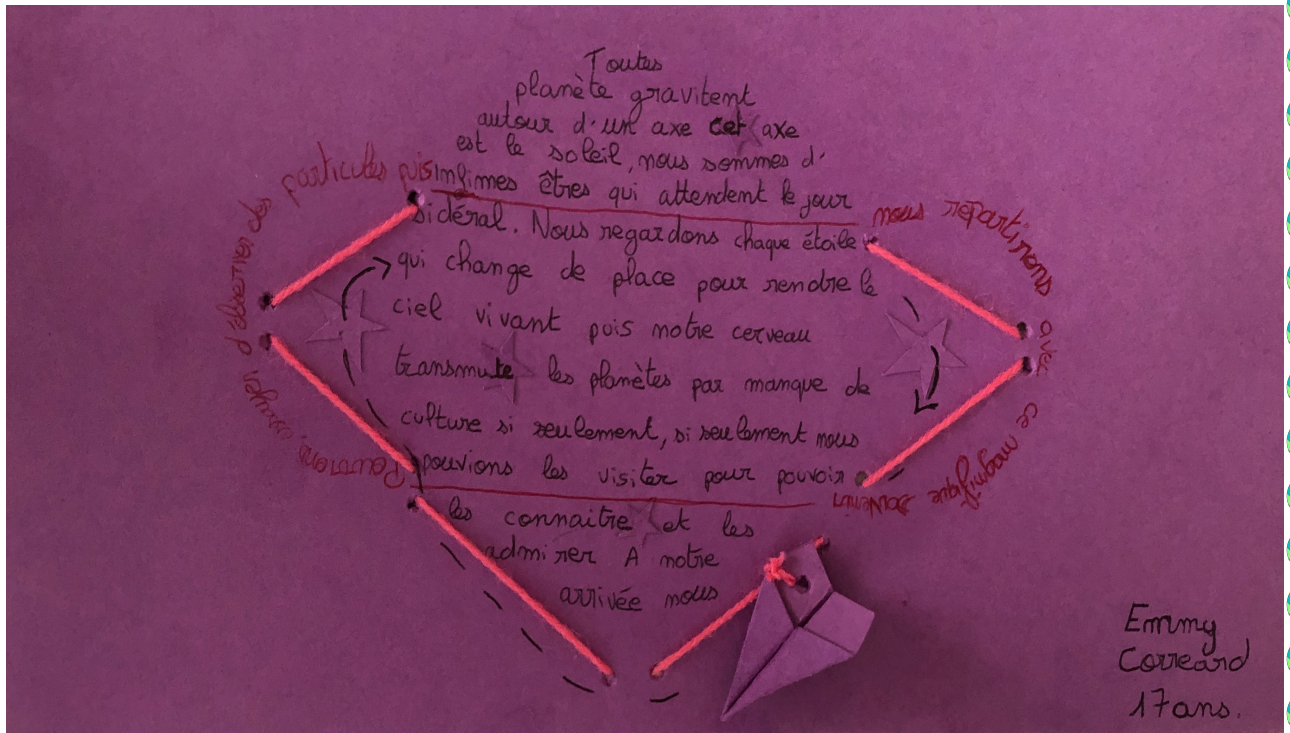 Toutes
planète gravitent
autour d'un axe cet axe
est le soleil, nous sommes d'
infimes êtres qui attendent le jour
sidéral. Nous regardons chaque étoile
qui change de place pour rendre le
ciel vivant puis notre cerveau
transmute les planètes par manque de
culture si seulement, si seulement nous
pouvions les visiter pour pouvoir
les connaitre et les
admirer A notre
arrivée nous
Pourrons, essayer d'observer des particules puis
nous repartirons avec ce magnifique souvenir
Emmy
Correard
17ans.